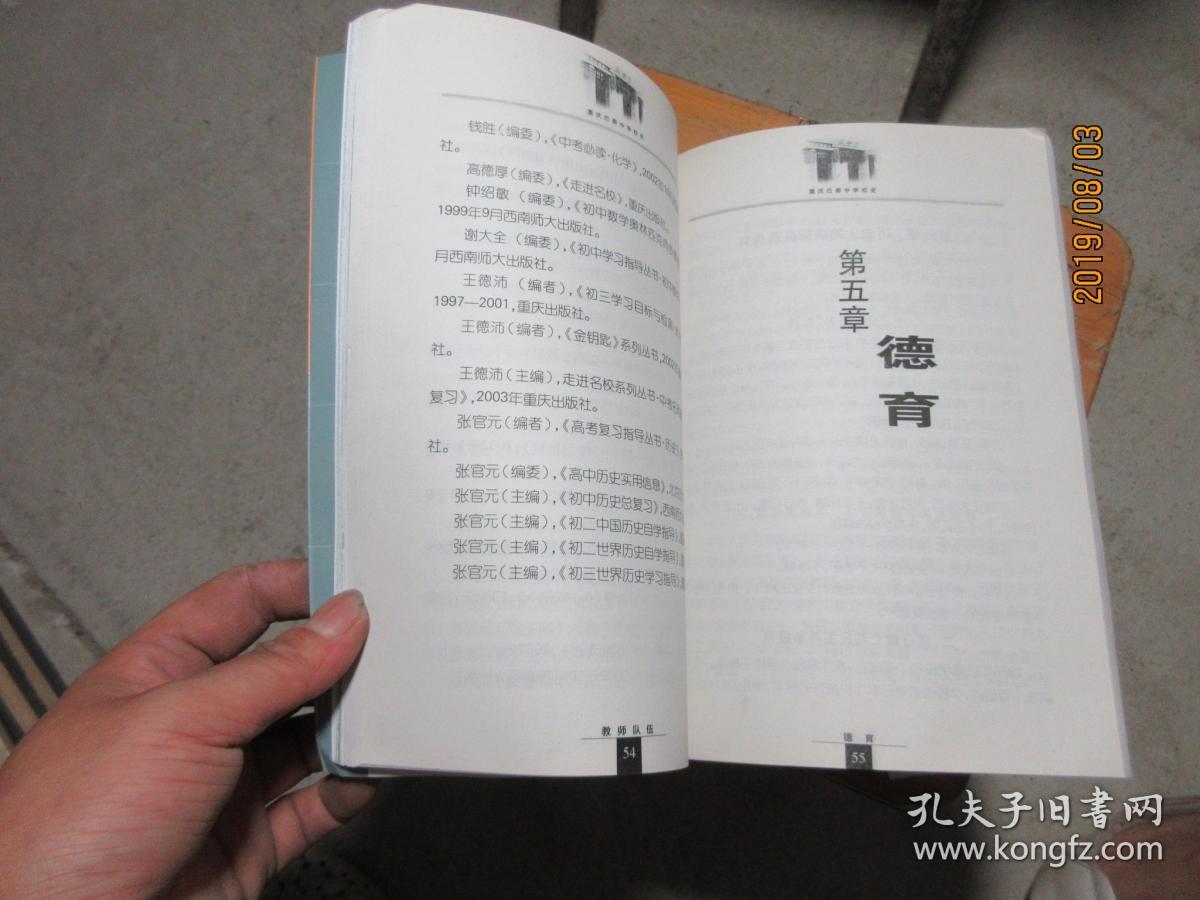 重庆巴蜀中学校史
钱胜(编委),《中考必读·化学》,2002年
社。
高德厚(编委),《走进名校》,重庆出版社。
钟绍敏(编委),《初中数学奥林匹克
1999年9月西南师大出版社。
谢大全(编委),《初中学习指导丛书·初
月西南师大出版社。
王德沛(编者),《初三学习目标与检测
1997—2001,重庆出版社。
王德沛(编者),《金钥匙》系列丛书,2002
社。
王德沛(主编),走进名校系列丛书·中考名
复习》,2003年重庆出版社。
张官元(编者),《高考复习指导丛书·历史》
社。
张官元(编委),《高中历史实用信息》,北京
张官元(主编),《初中历史总复习》,西南师
张官元(主编),《初二中国历史自学指导》,
张官元(主编),《初二世界历史自学指导》,
张官元(主编),《初三世界历史学习指导》,
教师队伍
54
重庆巴蜀中学校史
第五章
德育
德育
55
2019/08/03
孔夫子旧书网
www.kongfz.com